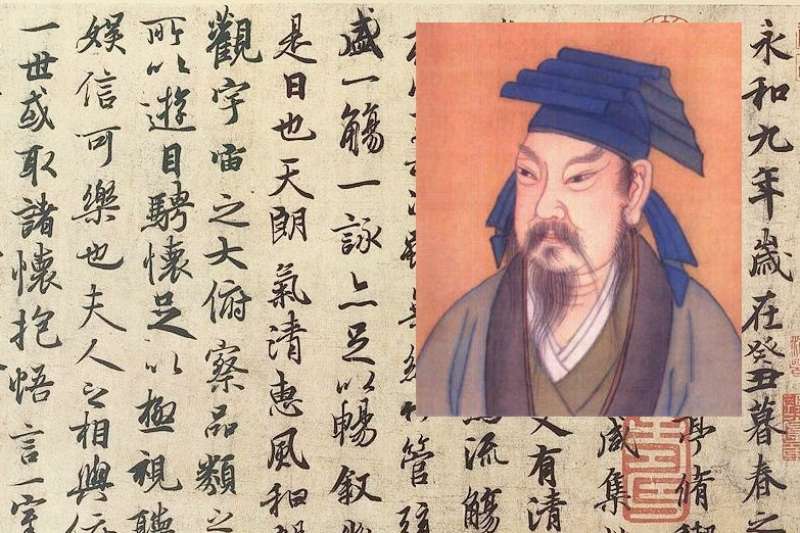 永和九年歲在癸丑暮春之
亭脩
咸集
又有清
流觴
管
盛一觴一詠亦足以暢敘
是日也天朗氣清惠風和
觀宇宙之大俯察品類之
所以遊目騁懷足以極視聽
娛信可樂也夫人之相與
一世或取諸懷抱悟言一室